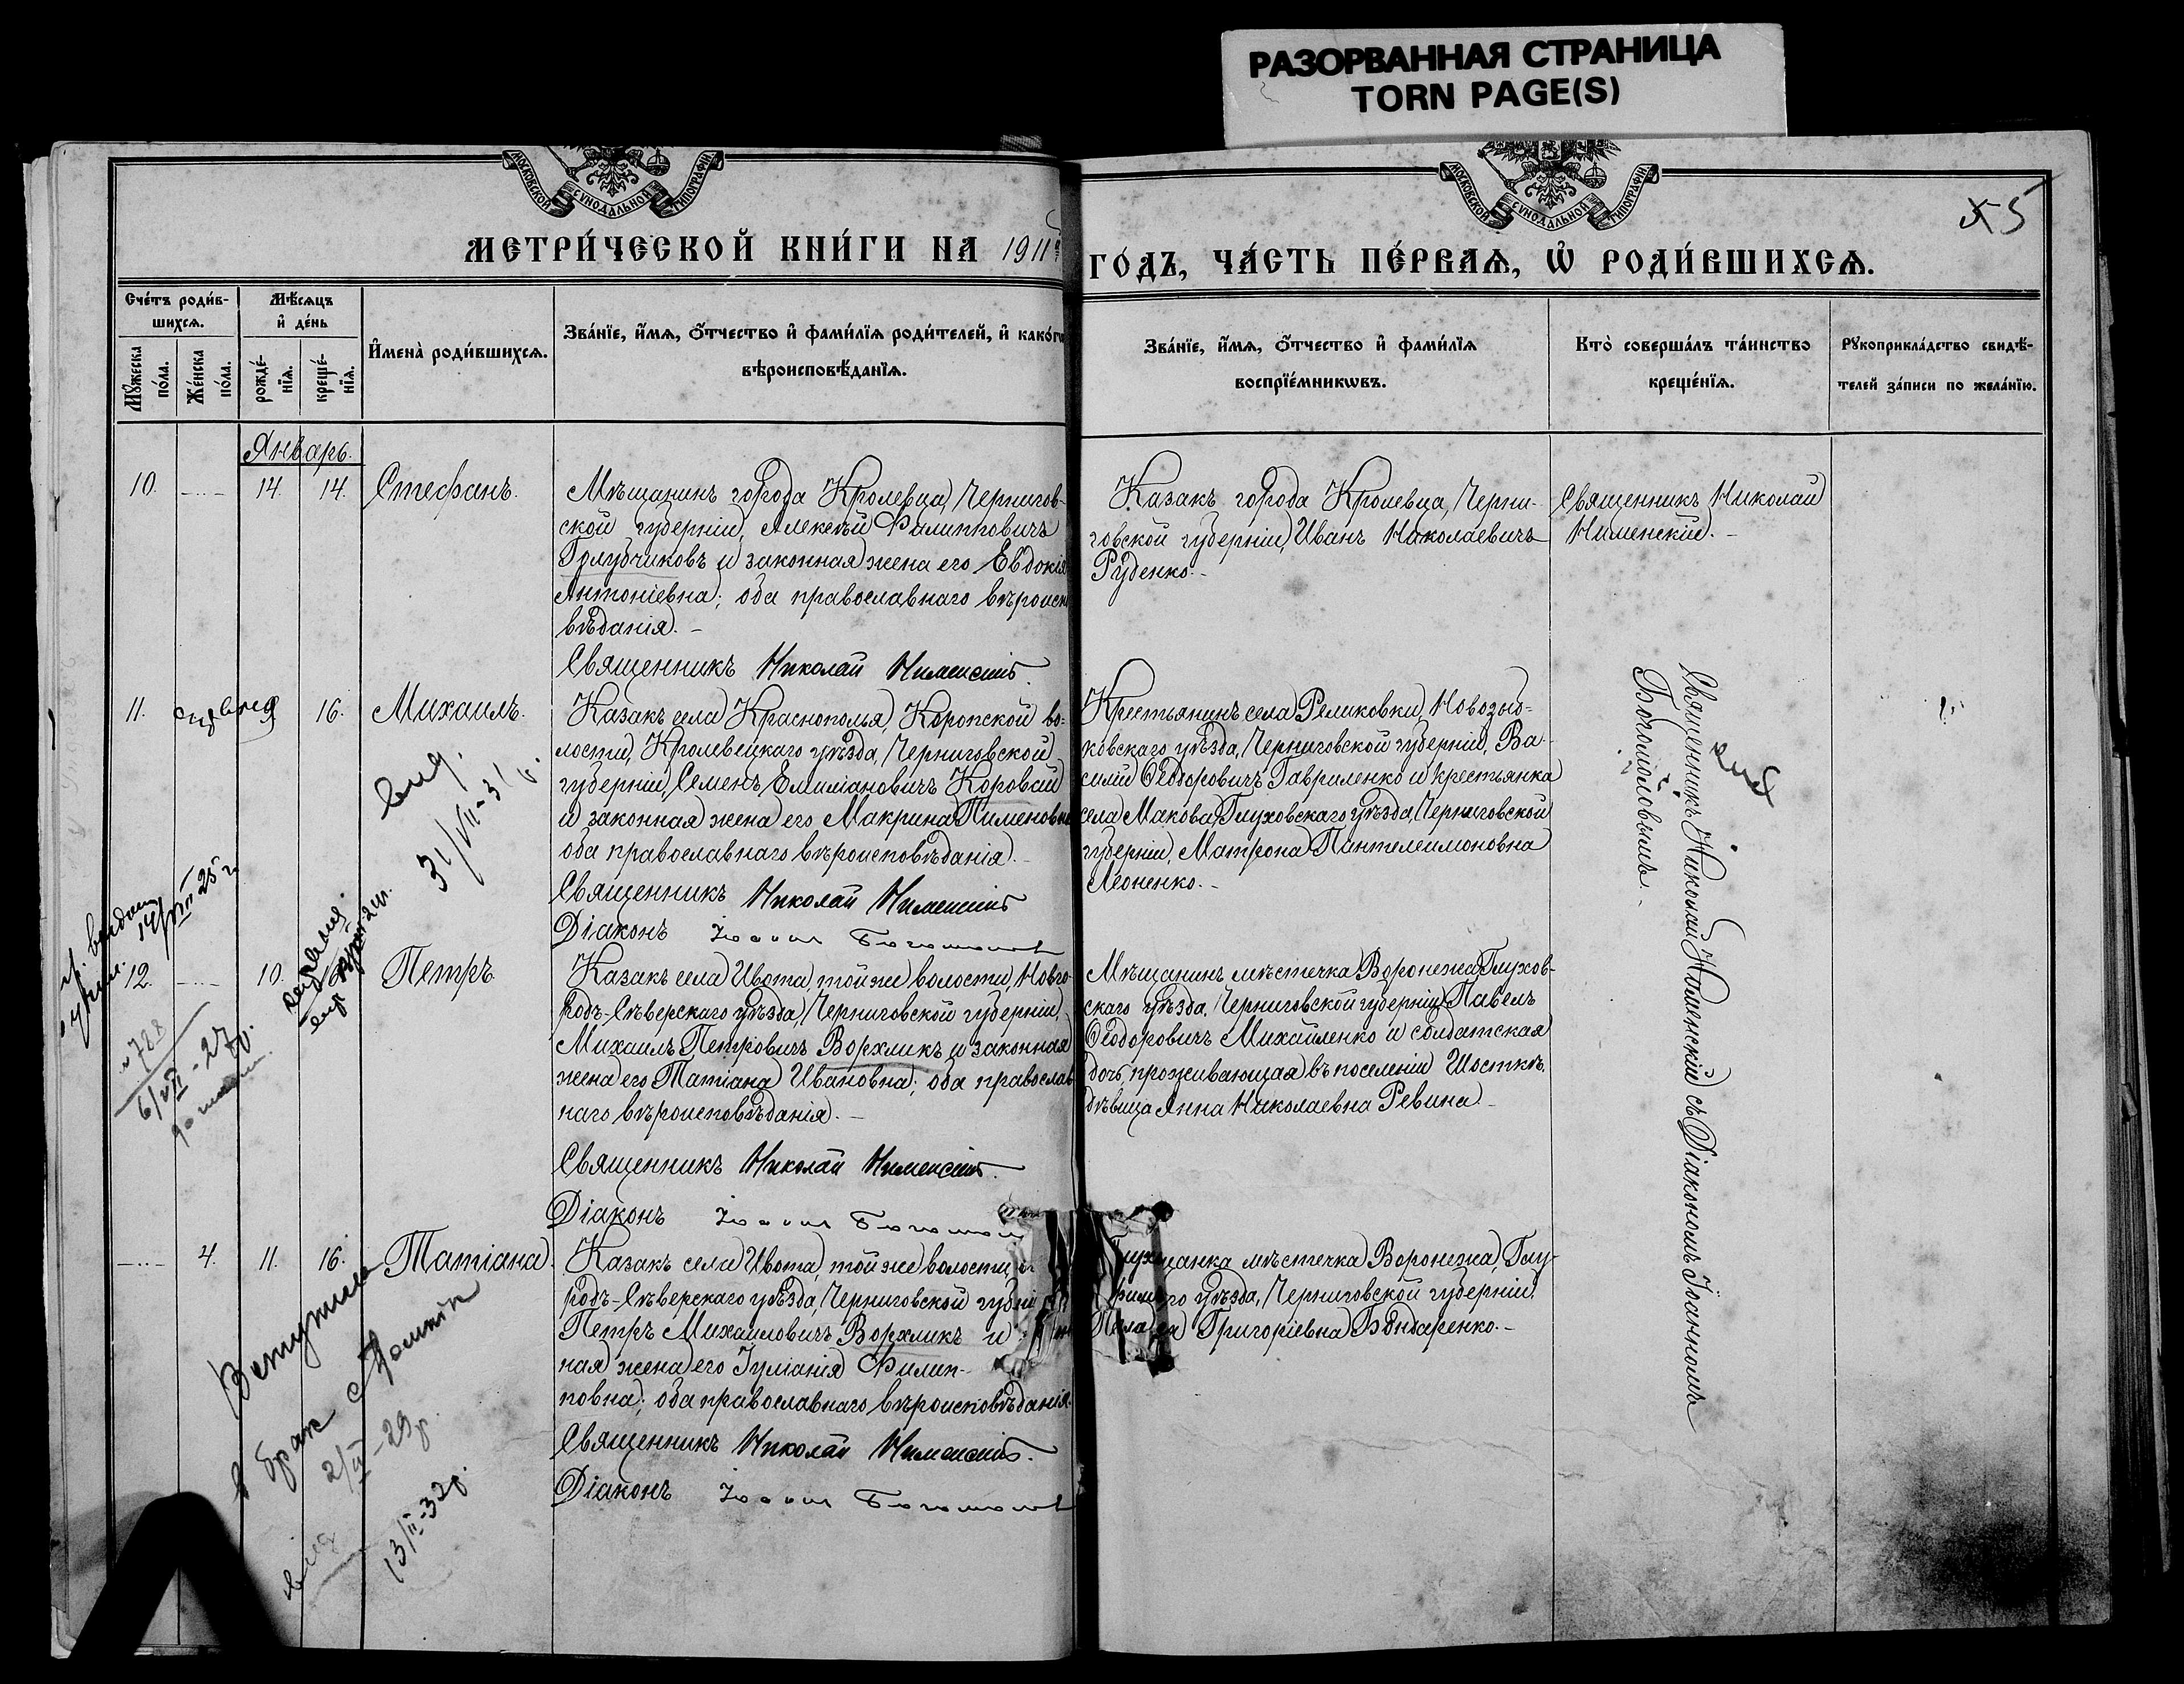 РАЗОРВАННАЯ СТРАНИЦА
TORN PAGE(S)
МОСКОВСКОЙ СѴНОДАЛЬНОЙ ТИПОГРАФІИ
МОСКОВСКОЙ СѴНОДАЛЬНОЙ ТИПОГРАФІИ
5
МЕТРИ́ЧЕСКОЙ КНИ́ГИ НА 1911
ГО́ДЪ, ЧА́СТЬ ПЕ́РВАѦ, Ѡ РОДИ́ВШИХСѦ.
Сче́тъ роди́в-
шихсѧ.
Мꙋ́жеска
по́ла.
Же́нска
по́ла.
Мѣ́сѧцъ
и҆ де́нь
рожде́-
нїѧ.
креще́-
нїѧ.
И҆мена̀ роди́вшихсѧ.
Зва́нїе, и҆́мѧ, ѻ҆́тчество и҆ фами́лїѧ роди́телей, и҆ како́гѡ
вѣроисповѣ́данїѧ.
Зва́нїе, и҆́мѧ, ѻ҆́тчество и҆ фами́лїѧ
воспрїе́мникѡвъ.
Кто̀ соверша́лъ та́инство
креще́нїѧ.
Рꙋкоприкла́дство свидѣ́-
телей за́писи по жела́нїю.
Январь.
10. 14. 14. Стефанъ.
Мѣщанинъ города Кролевца, Чернигов-
ской губерніи, Алексѣй Филипповичъ
Голубчиковъ и законная жена его Евдокія
Антоніевна; оба православнаго вѣроиспо
вѣданія. -
Священникъ Николай Нименскій.
Казакъ города Кролевца, Черни-
говской губерніи, Иванъ Николаевичъ
Руденко. -
Священникъ Николай
Нименскій. -
11. 16. Михаилъ.
Казакъ села Краснополья, Коропской во-
лости, Кролевецкаго уѣзда, Черниговской
губерніи, Семенъ Емиліановичъ Коровай
и законная жена его Макрина Пименовна
оба православнаго вѣроисповѣданія. -
Священникъ Николай Нименскій
Діаконъ Іоаннъ Богомоловъ
Крестьянинъ села Рѣликовки, Новозыб-
ковскаго уѣзда, Черниговской губерніи, Ва-
силій Ѳеодоровичъ Гавриленко и крестьянка
села Макова, Глуховскаго уѣзда, Черниговской
губерніи, Матрона Пантелеимоновна
Леоненко. -
Священникъ Николай Нименскій съ Діакономъ Іоанномъ
Богомоловымъ. -
вид.
31/VII-31 г.
12. 10. Петръ
Казакъ села Ивота, той же волости, Новго-
родъ-Сѣверскаго уѣзда, Черниговской губерніи,
Михаилъ Петровичъ Ворхликъ и законная
жена его Татіана Ивановна; оба православ
наго вѣроисповѣданія. -
Священникъ Николай Нименскій.
Діаконъ Іоаннъ Богомолов
Мѣщанинъ мѣстечка Воронежа, Глухов-
скаго уѣзда, Черниговской губерніи, Павелъ
Ѳеодоровичъ Михайленко и солдатская
дочь, проживающая въ поселеніи Шосткѣ,
дѣвица Анна Николаевна Ревина. -
№ 788
6/VII-27 г.
4. 11. 16. Татіана.
Казакъ села Ивота, той же волости,
родъ-Сѣверскаго уѣзда, Черниговской губ
Петръ Михаиловичъ Ворхликъ и
ная жена его Іуліанія Филип-
повна; оба православнаго вѣроисповѣданія.
Священникъ Николай Нименскій.
Діаконъ Іоаннъ Богомолов
мѣстечка Воронежа, Глу-
уѣзда, Черниговской губерніи,
Григоріевна Бондаренко. -
Вступила
в брак с
2/II-29 г.
вид
13/II-32 г.